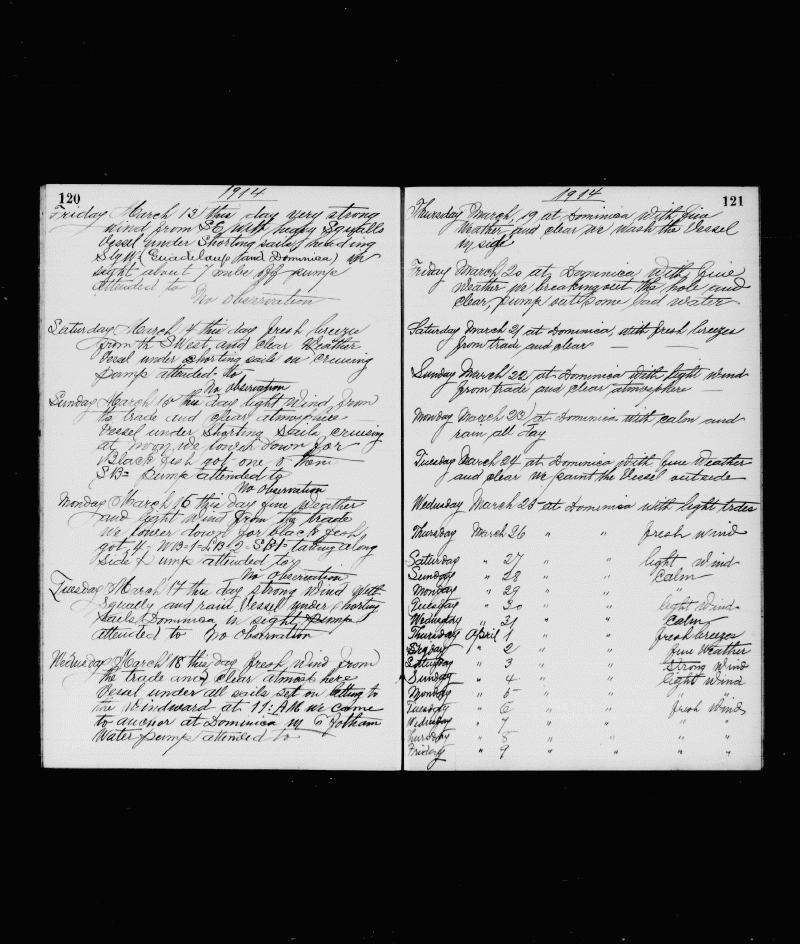 120
1914
Friday March 13 this day very strong
wind from SE with heavy Squalls
Vessel under Shorting sails heading
S by W (Guadeloup and Dominica) in
sight about 7 mile off pump
attended to
No observation
Saturday March 4 this day fresh breeze
from th S West, and clear Weather
Vesal under shorting sails on cruising
pump attended to
No observation
Sunday March 15 this day light wind from
the trade and clear atmosphere
Vessel under Shorting Sails cruising
at noon we lower down for
Black fish got one
SB= pump attended to
No Observation
Monday March 16 this day fine weather
and light wind from the trade
we lower down for black fish
got 4= WB=1=LB=2=SB1 taking along
side pump attended to
No observation
Tuesday March 17 this day strong wind with
squally and rain Vessel under shorting
sails Dominica in sight pump
attended to No Observation
Wednesday March 18 this day fresh wind from
the trade and clear atmos here
Vesal under all sails set on to
the Windward at 11: AM we come
to anchor at Dominica in 6 fotham
Water pump attended to
1914
121
Thursday March, 19 at Dominica, with fine
Weather and clear we wash the Vessel
in side
Friday March 20 at Dominica with fine
weather we breaking out the hole and
clear, pump out some bad water
Saturday March 21 at Dominica, with fresh breezes
from trade and clear
Sunday March 22 at Dominica with light wind
from trade and clear atmosphere
Monday March 23 at Dominica with calm and
rain all day
Tuesday March 24 at Dominica with fine Weather
and clear we paint the Vessel outside
Wednesday March 25 at Dominica with light trades
Thursday March 26 " " fresh wind
Saturday " 27 " " light wind
Sunday " 28 " " Calm
Monday " 29 " " "
Tuesday " 30 " " light wind
Wednesday " 31 " " Calm
Thursday April 1 " " fresh breezes
Friday " 2 " " fine Weather
Saturday " 3 " " Strong wind
Sunday " 4 " " light wind
Monday " 5 " " " "
Tuesday " 6 " " fresh wind
Wednesday " 7 " " " "
Thursday " 8 " " " "
Friday " 9 " " " "